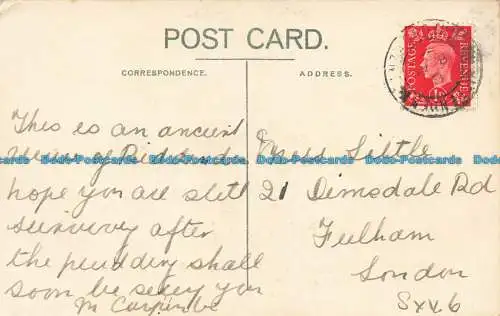 POST CARD.
CORRESPONDENCE.
ADDRESS.
POSTAGE
REVENUE
This is an ancient
view of
hope you are still
after
the pudding shall
soon be seeing you
M
Miss Little
21 Dimsdale Rd
Fulham
London
S.W.6
Dodo-Postcards Dodo-Postcards Dodo-Postcards Dodo-Postcards Dodo-Postcards Dodo-Postcards